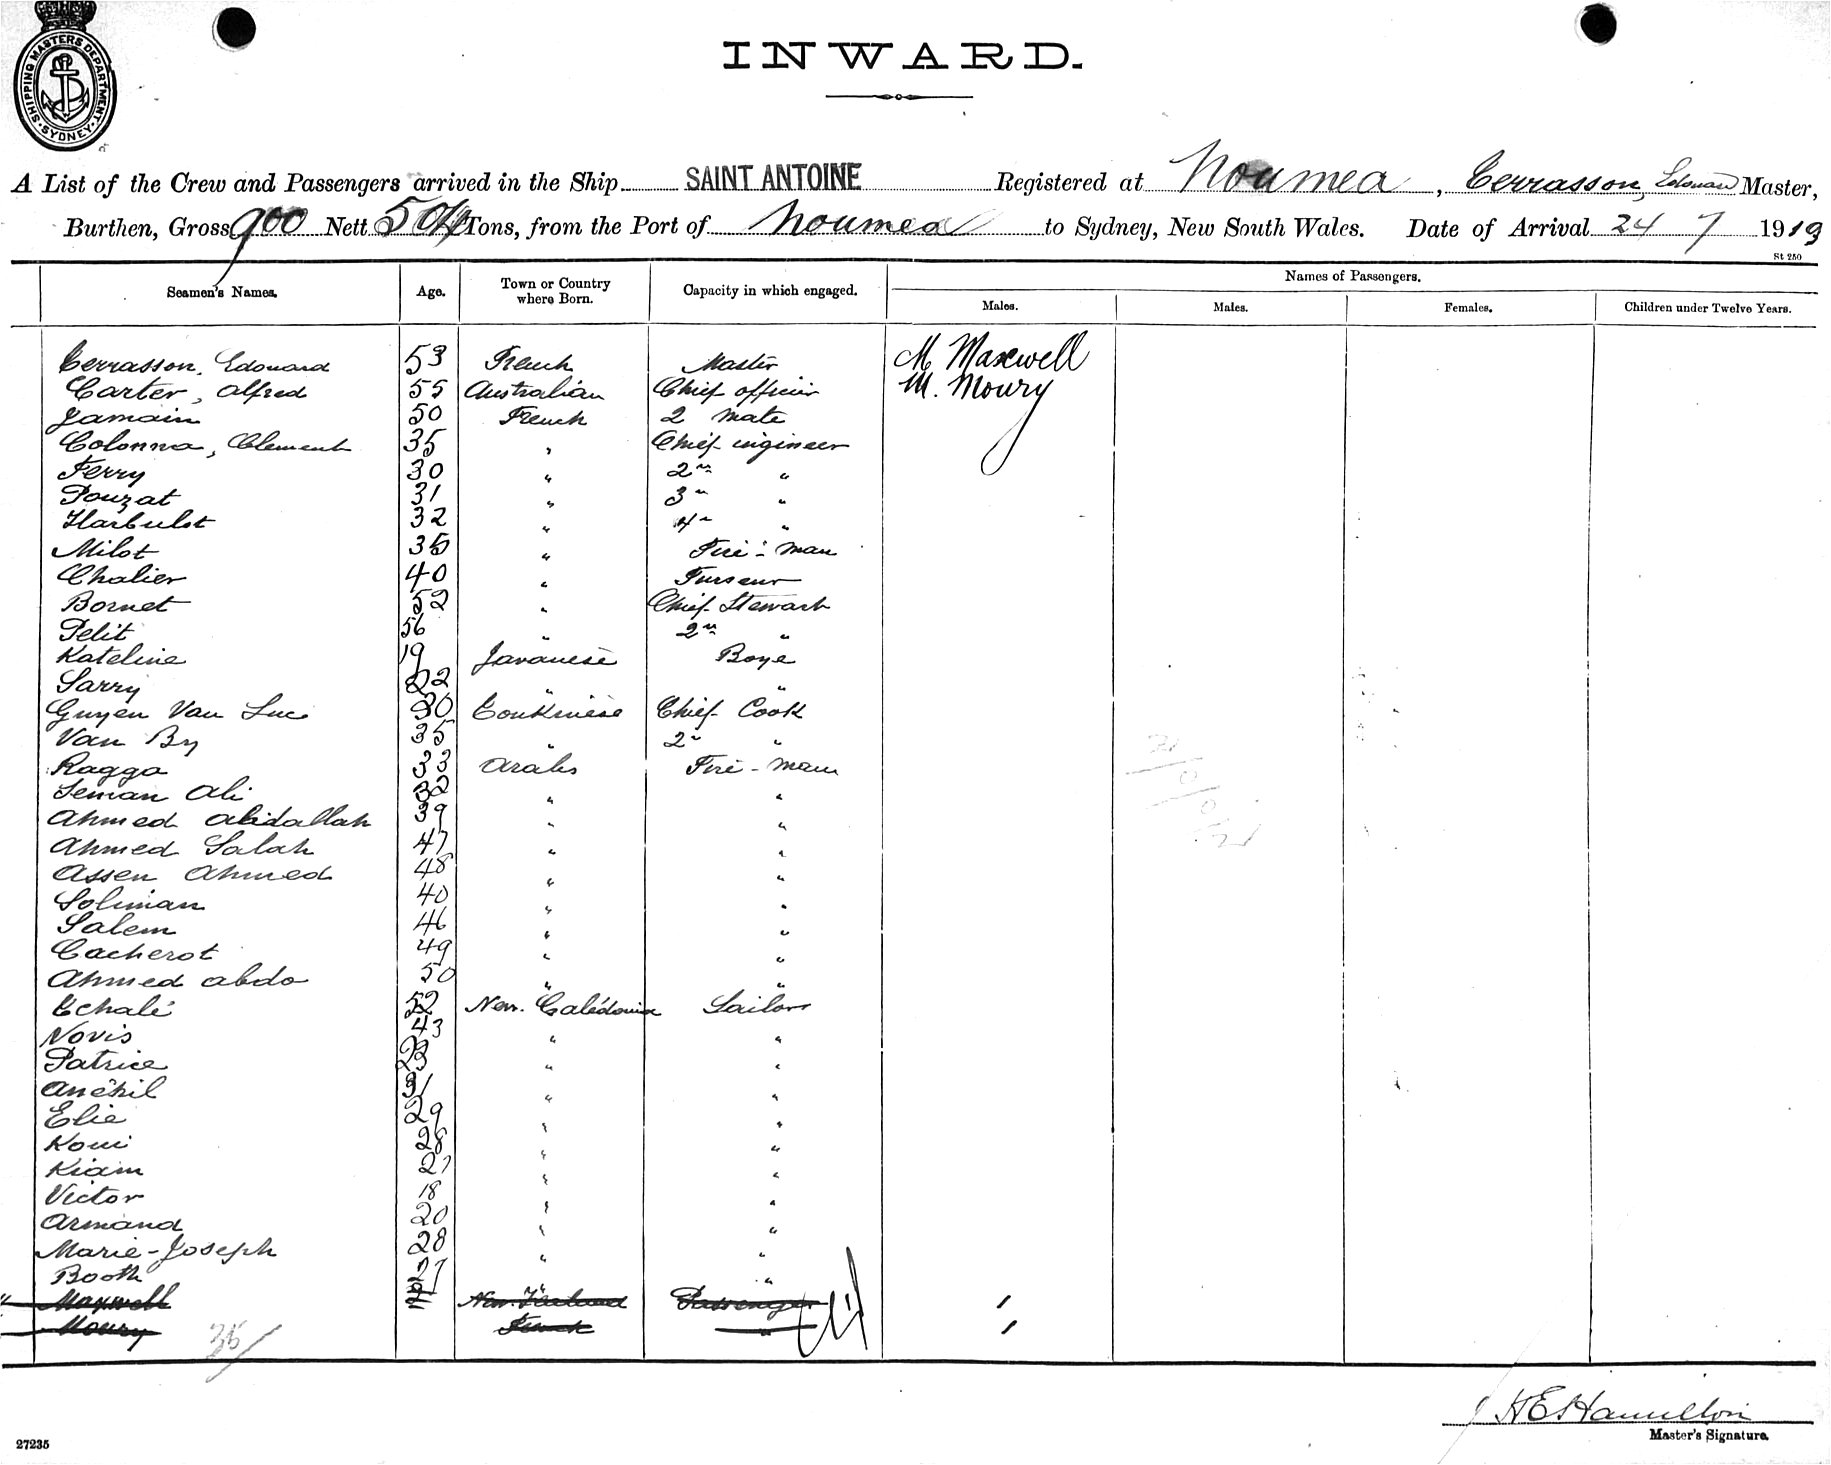 SHIPPING MASTERS DEPARTMENT. SYDNEY
INWARD.
A List of the Crew and Passengers arrived in the Ship SAINT ANTOINE Registered at Noumea, Cerrasson, Edouard Master,
Burthen, Gross 900 Nett 504 Tons, from the Port of Noumea to Sydney, New South Wales. Date of Arrival 24 7 1919
St 250
Seamen's Names. Age. Town or Country where Born. Capacity in which engaged. Names of Passengers.
Males. Males. Females. Children under Twelve Years.
Cerrasson, Edouard 53 French Master M. Maxwell
Carter, Alfred 55 Australian Chief officier M. Moury
Jamain 50 French 2 mate
Colonna, Clement 35 " Chief engineer
Ferry 30 " 2" "
Pouzat 31 " 3" "
Harbulot 32 " 4" "
Milot 35 " Fire-man
Chalier 40 " Purseur
Bornet 52 " Chief Stewart
Petit 56 " 2" "
Kateline 19 Javanese Boye
Sarry 22 " "
Guyen Van Luc 30 Tonkinese Chief Cook
Van By 35 " 2" "
Ragga 33 Arabs Fire-man
Seman Ali 32 " "
Ahmed Abdallah 39 " "
Ahmed Salah 47 " "
Assen Ahmed 48 " "
Soliman 40 " "
Salem 46 " "
Cacherot 49 " "
Ahmed abdo 50 " "
Echalé 52 New. Calédonia Sailors
Novis 43 " "
Patrice " "
Anéhil " "
Elie 29 " "
Koui 28 " "
Kiam 27 " "
Victor 18 " "
Armand 20 " "
Marie-Joseph 28 " "
Booth 27 " "
" Maxwell New. Zealand Passenger
Moury French "
35/
HE Hamilton
Master's Signature.
27235